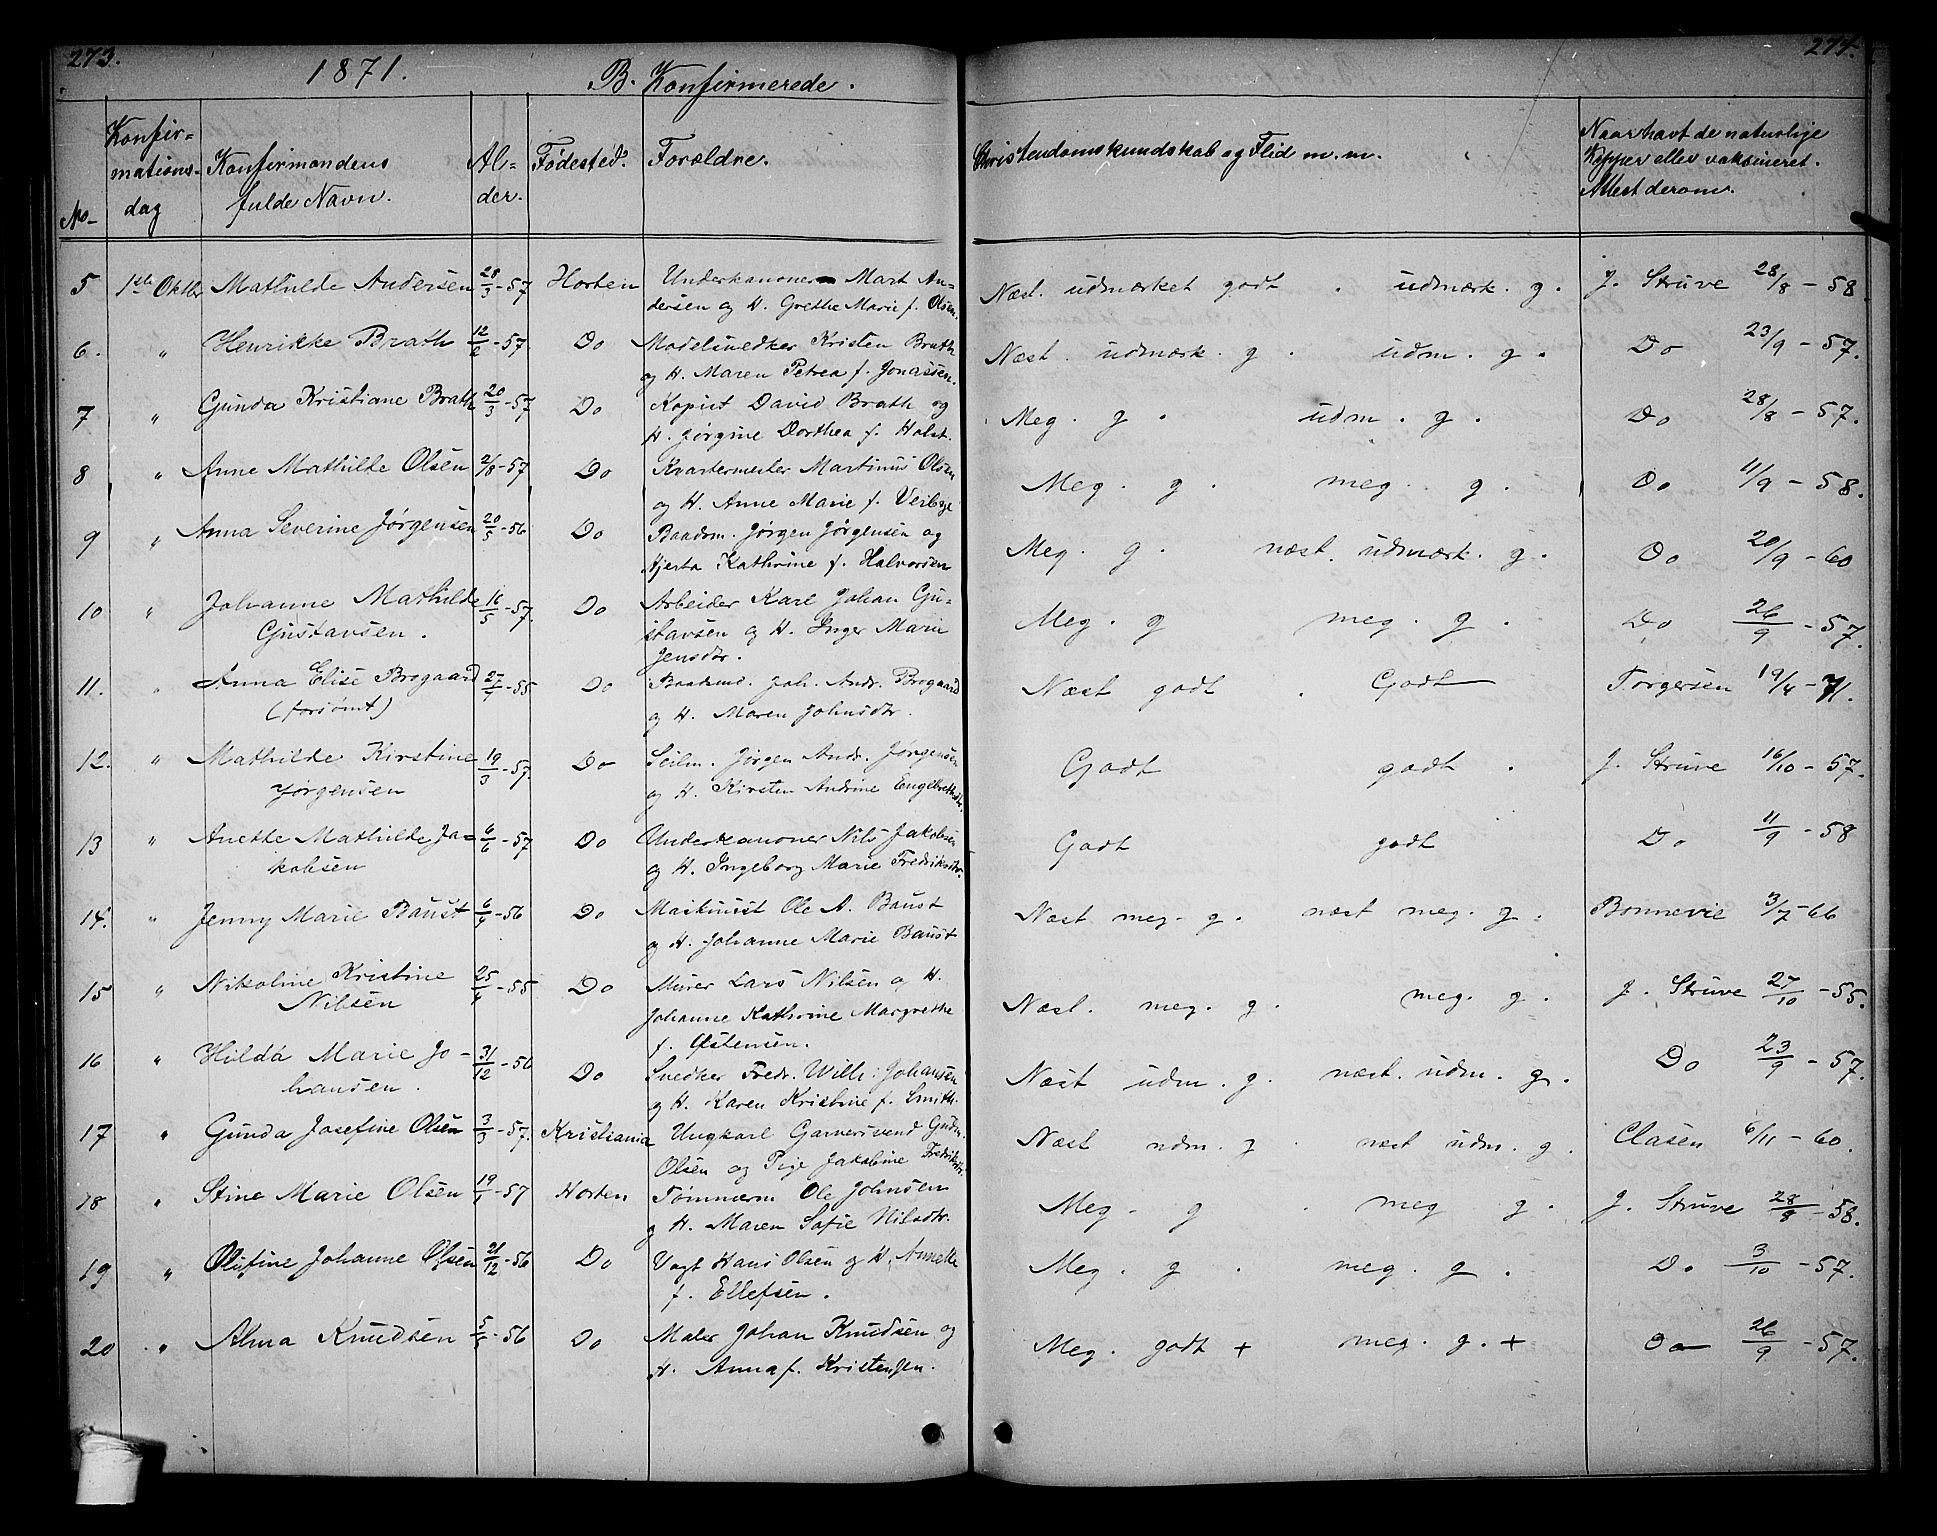 273.
274.
1871.
B. Konfirmerede.
No
Konfir=
mations-
dag
Konfirmandens
fulde Navn.
Al-
der.
Fødested.
Forældre.
Christendomskundskab og Flid m. m.
Naar havt de naturlige
Kopper eller vaksineret.
Attest derom.
5 1ste Oktbr Mathilde Andersen 28/3-57 Horten Underkanoner Mart An-
dersen og H. Grethe Marie f. Olsen.
Næst. udmærket godt . udmærk. g. J. Struve 28/8-58
6. " Henrikke Brath 12/2-57. Do Modelsnedker Kristen Brath
og H. Maren Petrea f. Jonassen.
Næst. udmærk. g. udm. g. Do 23/9-57.
7 " Gunda Kristiane Brath 20/3-57 Do Kopist David Brath og
H. Jørgine Dorthea f. Holst.
Meg. g. udm. g. Do 28/8-57.
8 " Anne Mathilde Olsen 2/8-57 Do Kvartermester Martinus Olsen
og H. Anne Marie f. Veibye
Meg. g. meg. g. Do 11/9-58.
9 " Anna Severine Jørgensen 20/5-56 Do Baadsm. Jørgen Jørgensen og
Hjerta Kathrine f. Halvorsen
Meg. g. næst. udmærk. g. Do 20/9-60
10 " Johanne Mathilde 16/5-57. Do Arbeider Karl Johan Gu=
Gustavsen. stavsen og H. Inger Marie
Jensdtr.
Meg. g meg. g. Do 26/9-57.
11. " Anna Elise Brogaard 27/4-55 Do Baadsmd. Joh. Andr. Brogaard
(forsømt) og H. Maren Johnsdtr.
Næst godt . Godt Torgersen 19/4-71.
12. " Mathilde Kirstine 19/3-57. Do Seilm. Jørgen Andr. Jørgensen
Jørgensen og H. Kirsten Andrine Engebretsdtr.
Godt godt . J. Struve 16/10-57.
13 " Anette Mathilde Ja- 6/6-57 Do Underkanoner Nils Jakobsen
kobsen og H. Ingeborg Marie Fredriksdtr.
Godt godt Do 11/9-58
14. " Jenny Marie Baust 6/4-56 Do Maskinist Ole A. Baust
og H. Johanne Marie Baust
Næst meg. g. næst meg. g. Bonnevie 3/7-66
15 " Nikoline Kristine 25/4-55 Do Murer Lars Nilsen og H.
Nilsen Johanne Kathrine Margrethe
f. Østensen.
Næst. meg. g. meg. g. J. Struve 27/10-55.
16 " Hilda Marie Jo- 31/12-56 Do Snedker Fredr. Wilh. Johansen
hansen. og H. Karen Kristine f. Smith.
Næst udm. g. næst. udm. g. Do 23/9-57.
17 " Gunda Josefine Olsen 3/3-57. Kristiania Ungkarl Garversvend Gudm.
Olsen og Pige Jakobine Fredriksdtr.
Næst udm. g . næst udm. g. Clasen 6/11-60.
18 " Stine Marie Olsen 19/1-57 Horten Tømmerm Ole Johnsen
og H. Maren Sofie Nilsdtr.
Meg. g . meg g. J. Struve 28/8-58.
19 " Olufine Johanne Olsen 21/12-56 Do Vagt Hans Olsen og H. Annette
f. Ellefsen.
Meg. g . meg. g. Do 3/10-57.
20 " Alma Knudsen 5/5-56 Do Maler Johan Knudsen og
H. Anna f. Kristensen.
Meg. godt + meg. g. + Do 26/9-57.